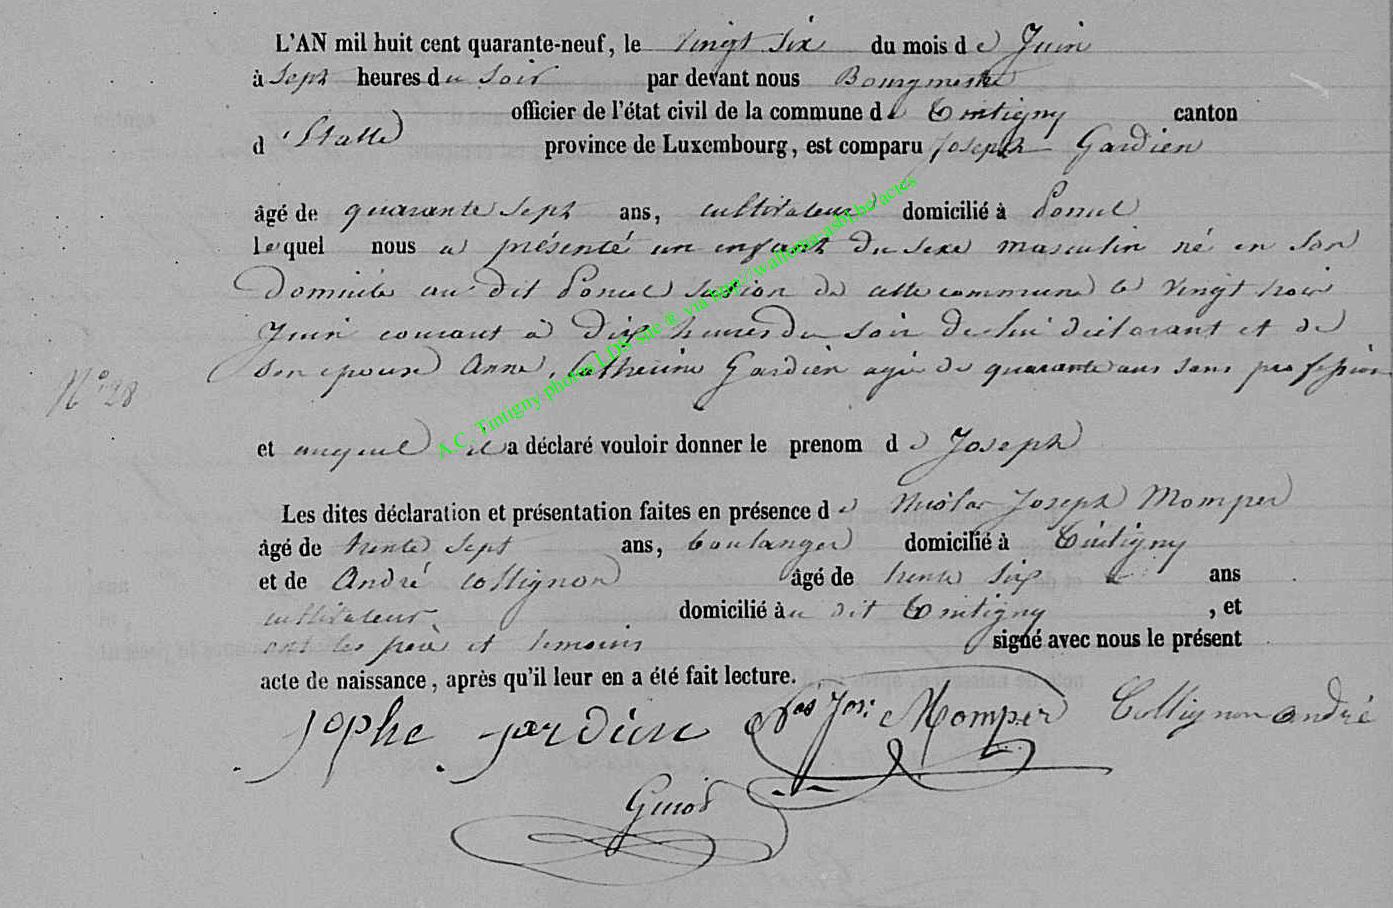 L'AN mil huit cent quarante-neuf, le vingt six du mois de Juin
à Sept heures du soir par devant nous Bourgmestre
officier de l'état civil de la commune de Tintigny canton
d'Etalle province de Luxembourg, est comparu Joseph Gardien
âgé de quarante sept ans, cultivateur domicilié à Poncel
lequel nous a présenté un enfant du sexe masculin né en son
Domicile au dit Poncel section de cette commune le vingt trois
Juin courant à Dix heures du soir de lui déclarant et de
son epouse Anne, Catherine Gardien agée de quarante ans sans profession
N° 28
et auquel il a déclaré vouloir donner le prenom de Joseph
Les dites déclaration et présentation faites en présence de Nicolas Joseph Momper
âgé de trente sept ans, boulanger domicilié à Tintigny
et de André Collignon âgé de trente six ans
cultivateur domicilié au dit Tintigny, et
ont les père et temoins signé avec nous le présent
acte de naissance, après qu'il leur en a été fait lecture.
Jophe gardien Nas Jos: Momper Collignon andré
A.C. Tintigny photos LDS Sue ® via http://wallonia-asbl.be/actes